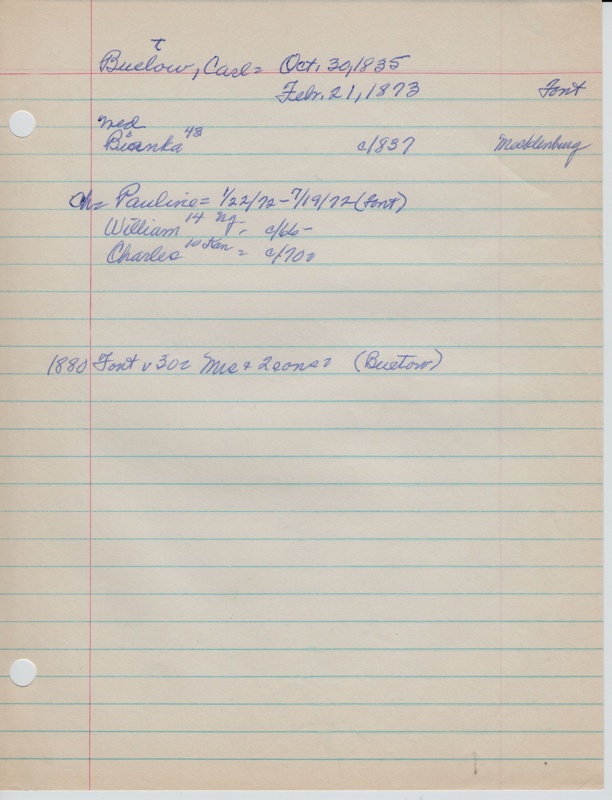 t
Buelow, Carl = Oct. 30, 1835
Feb. 21, 1873 Font
med
Bianka 43 c/837 Mecklenburg
Ch = Pauline = 1/22/72 - 7/19/72 (Font)
William 14 Ng = c/66 -
Charles 10 Kan = c/70 =
1880 Font v 30 = Mrs + 2 sons = (Buetow)